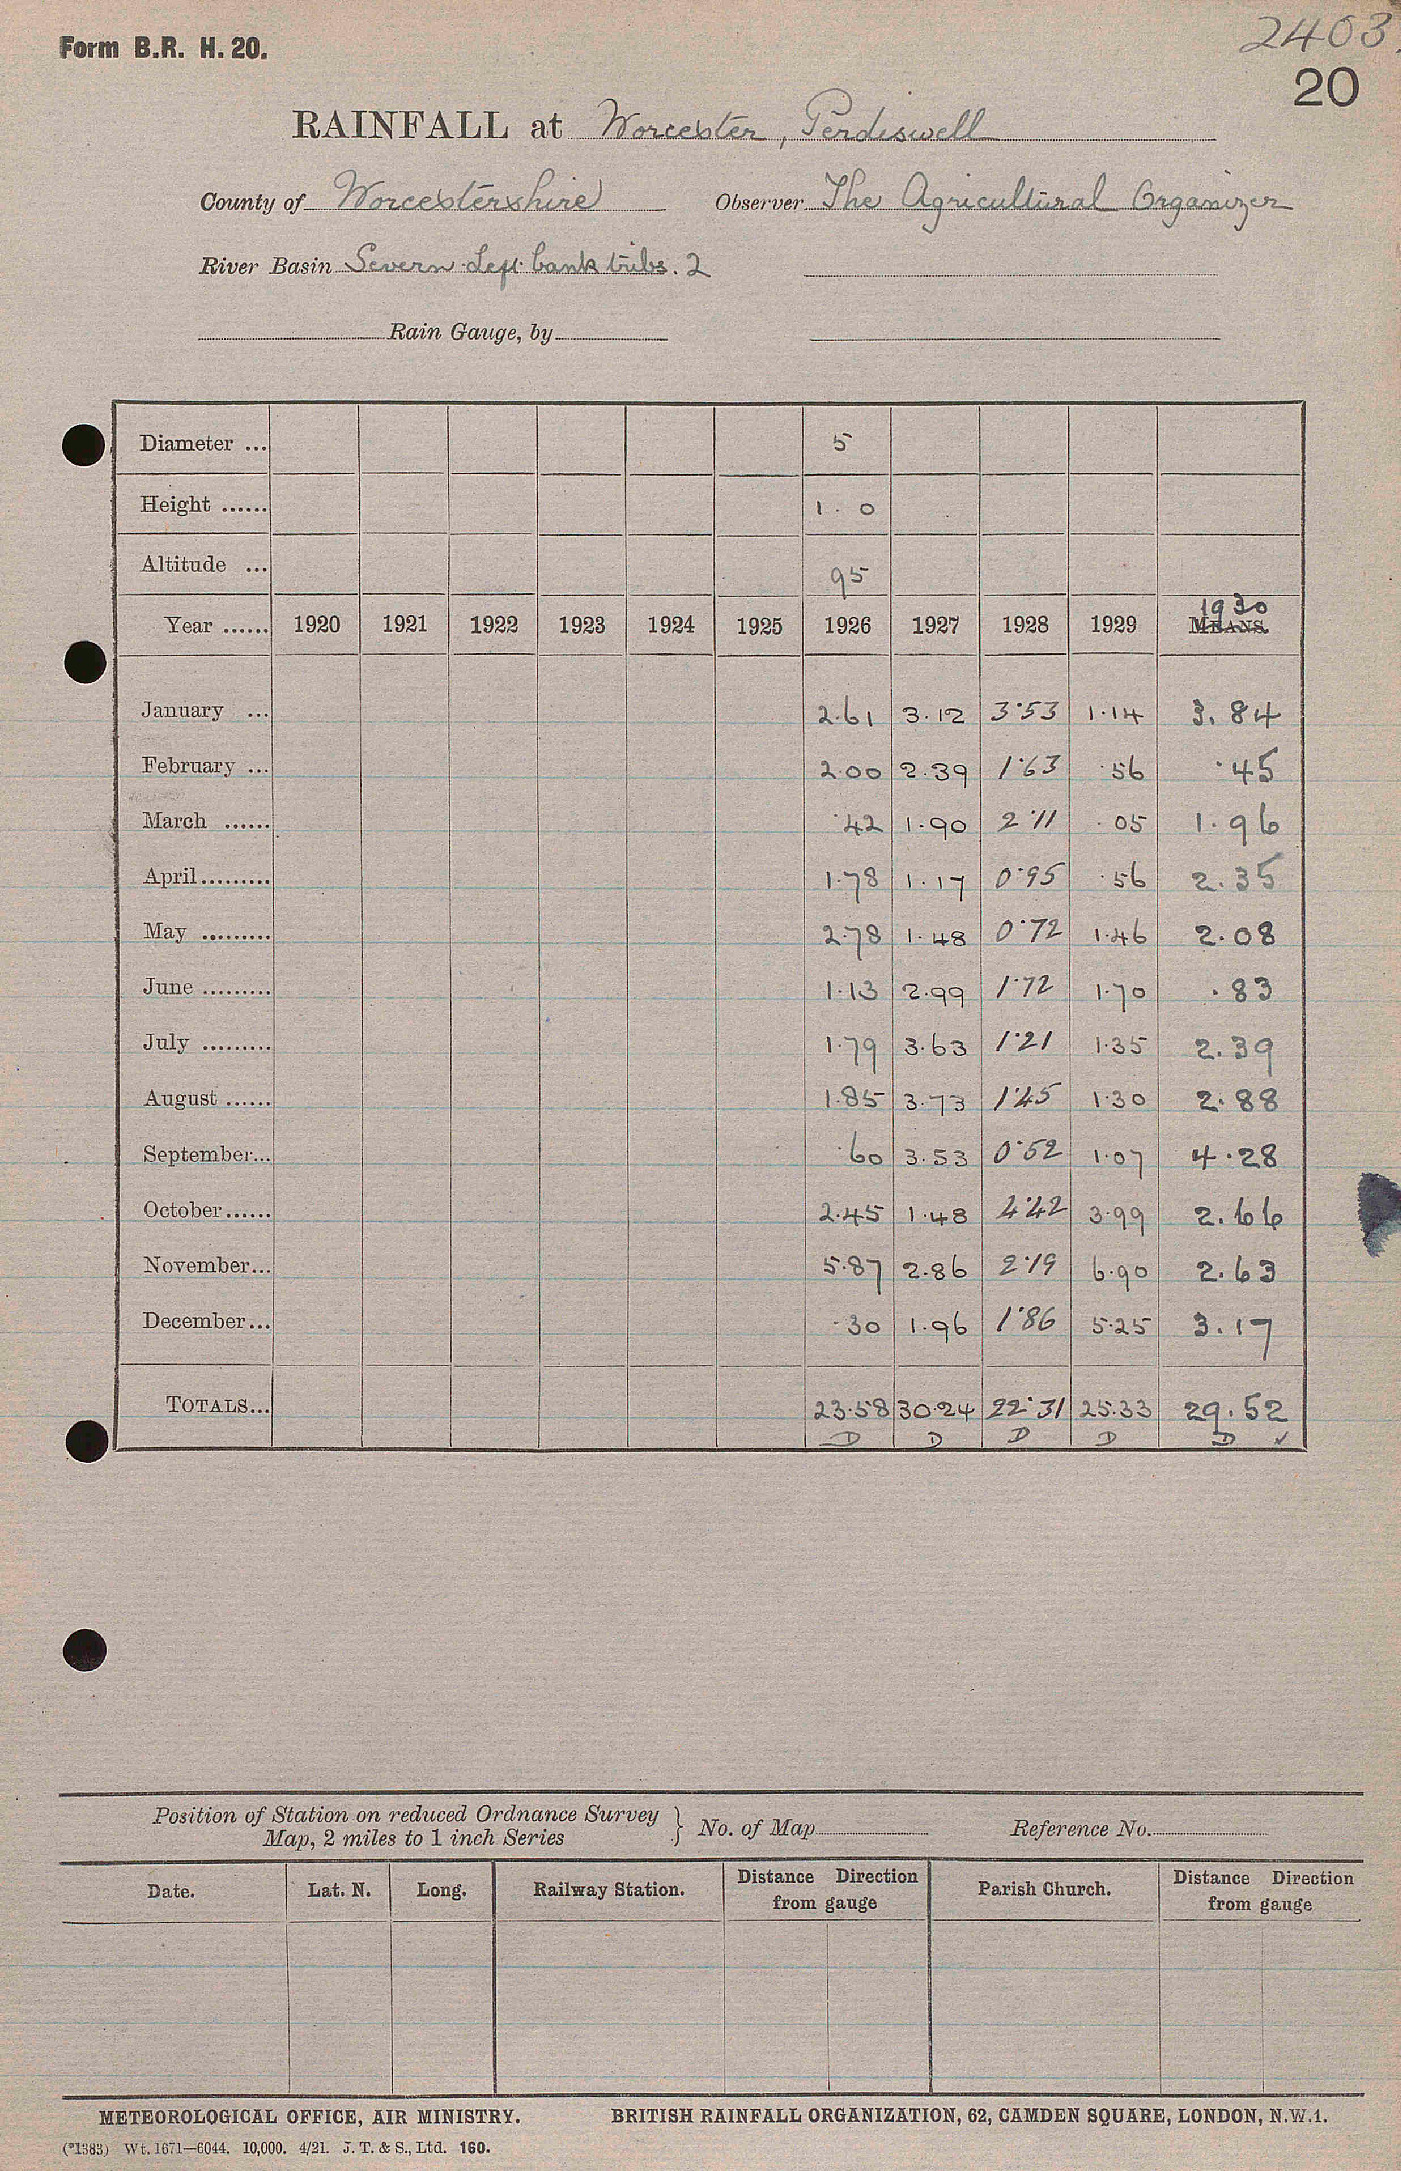 Form B.R. H. 20.
2403.
20
RAINFALL at Worcester, Perdiswell
County of Worcestershire Observer The Agricultural Organizer
River Basin Severn Left bank tribs. 2
Rain Gauge, by
Diameter ... 5
Height ...... 1. 0
Altitude ... 95
Year ...... 1920 1921 1922 1923 1924 1925 1926 1927 1928 1929 1930 MEANS.
January ... 2.61 3.12 3.53 1.14 3.84
February ... 2.00 2.39 1.63 .56 .45
March ...... .42 1.90 2.11 .05 1.96
April......... 1.78 1.17 0.95 .56 2.35
May ......... 2.78 1.48 0.72 1.46 2.08
June ......... 1.13 2.99 1.72 1.70 .83
July ......... 1.79 3.63 1.21 1.35 2.39
August ...... 1.85 3.73 1.45 1.30 2.88
September... .60 3.53 0.52 1.07 4.28
October...... 2.45 1.48 4.42 3.99 2.66
November... 5.87 2.86 2.19 6.90 2.63
December... .30 1.96 1.86 5.25 3.17
TOTALS... 23.58 30.24 22.31 25.33 29.52
D D D D D ✓
Position of Station on reduced Ordnance Survey
Map, 2 miles to 1 inch Series } No. of Map Reference No.
Date. Lat. N. Long. Railway Station. Distance Direction from gauge Parish Church. Distance Direction from gauge
METEOROLOGICAL OFFICE, AIR MINISTRY. BRITISH RAINFALL ORGANIZATION, 62, CAMDEN SQUARE, LONDON, N.W.1.
(*1383) Wt. 1671—6044. 10,000. 4/21. J. T. & S., Ltd. 160.